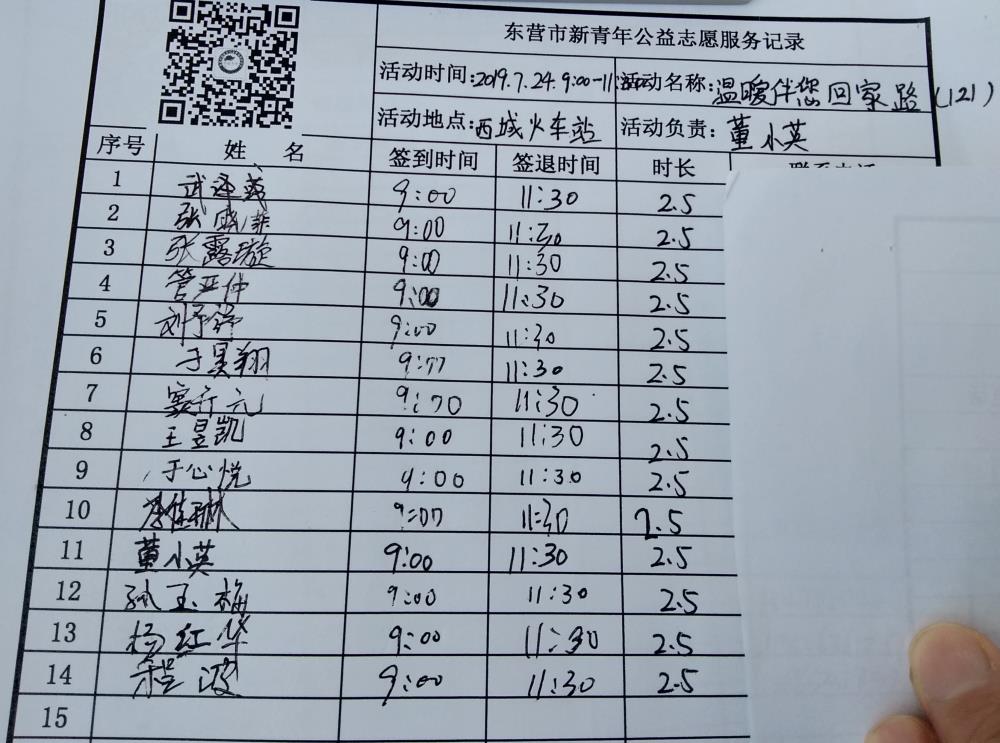 东营市新青年公益志愿服务记录
活动时间:2019.7.24.9:00-11:30 活动名称:温暖伴您回家路(121)
活动地点:西城火车站 活动负责:董小英
序号 姓 名 签到时间 签退时间 时长
1 9:00 11:30 2.5
2 张 9:00 11:30 2.5
3 张露璇 9:00 11:30 2.5
4 管亚仲 9:00 11:30 2.5
5 刘予 9:00 11:30 2.5
6 于昊翔 9:00 11:30 2.5
7 11:30 2.5
8 王昱凯 9:00 11:30 2.5
9 于心悦 9:00 11:30 2.5
10 9:00 11:30 2.5
11 董小英 9:00 11:30 2.5
12 孙玉梅 9:00 11:30 2.5
13 杨红华 9:00 11:30 2.5
14 程波 9:00 11:30 2.5
15